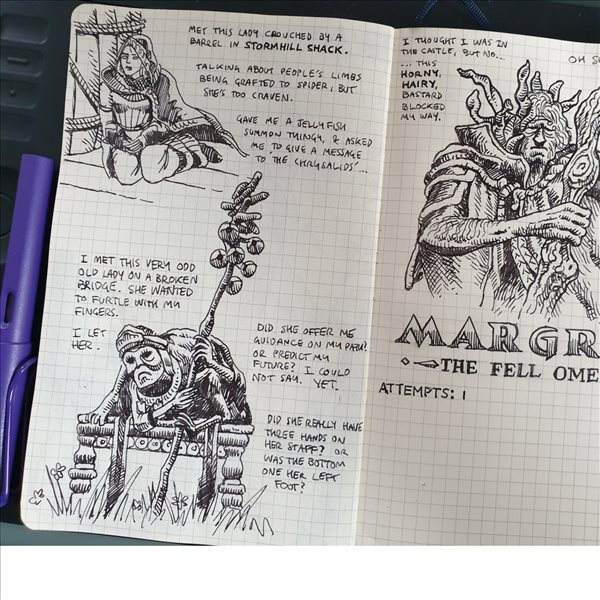 MET THIS LADY CROUCHED BY A
BARREL IN STORMHILL SHACK.
TALKING ABOUT PEOPLE'S LIMBS
BEING GRAFTED TO SPIDER, BUT
SHE'S TOO CRAVEN.
GAVE ME A JELLYFISH
SUMMON THINGY, & ASKED
ME TO GIVE A MESSAGE
TO THE CHRYSALIDS'...
I MET THIS VERY ODD
OLD LADY ON A BROKEN
BRIDGE. SHE WANTED
TO FURTLE WITH MY
FINGERS.
I LET
HER.
DID SHE OFFER ME
GUIDANCE ON MY PATH?
OR PREDICT MY
FUTURE? I COULD
NOT SAY. YET.
DID SHE REALLY HAVE
THREE HANDS ON
HER STAFF? OR
WAS THE BOTTOM
ONE HER LEFT
FOOT?
I THOUGHT I WAS IN
THE CASTLE, BUT NO...
... THIS
HORNY,
HAIRY,
BASTARD
BLOCKED
MY WAY.
OH
MARGR
THE FELL OME
ATTEMPTS: 1